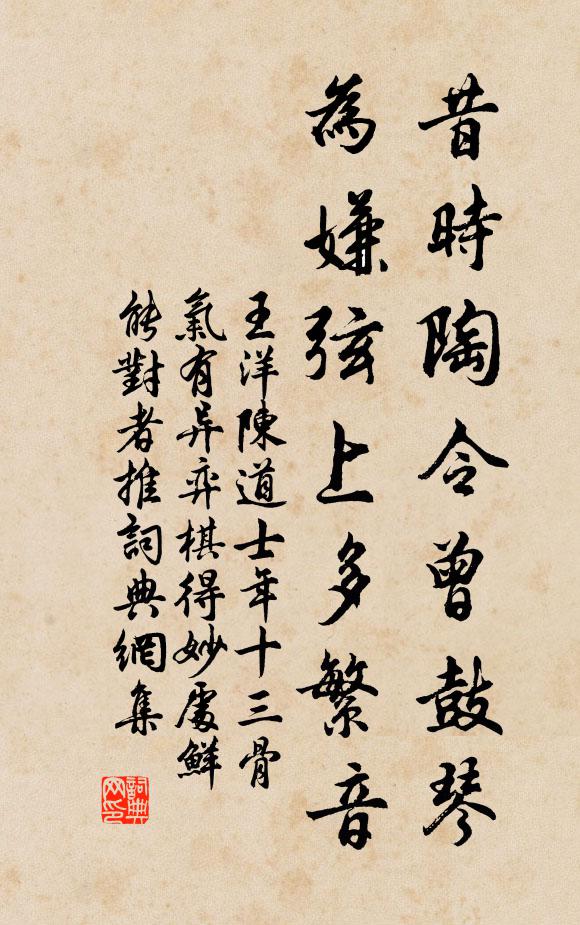 昔時陶令曾鼓琴
為嫌弦上多繁音
王洋陳道士年十三骨
氣有异弈棋得妙處鮮
能對者推詞典網集
詞典
网印